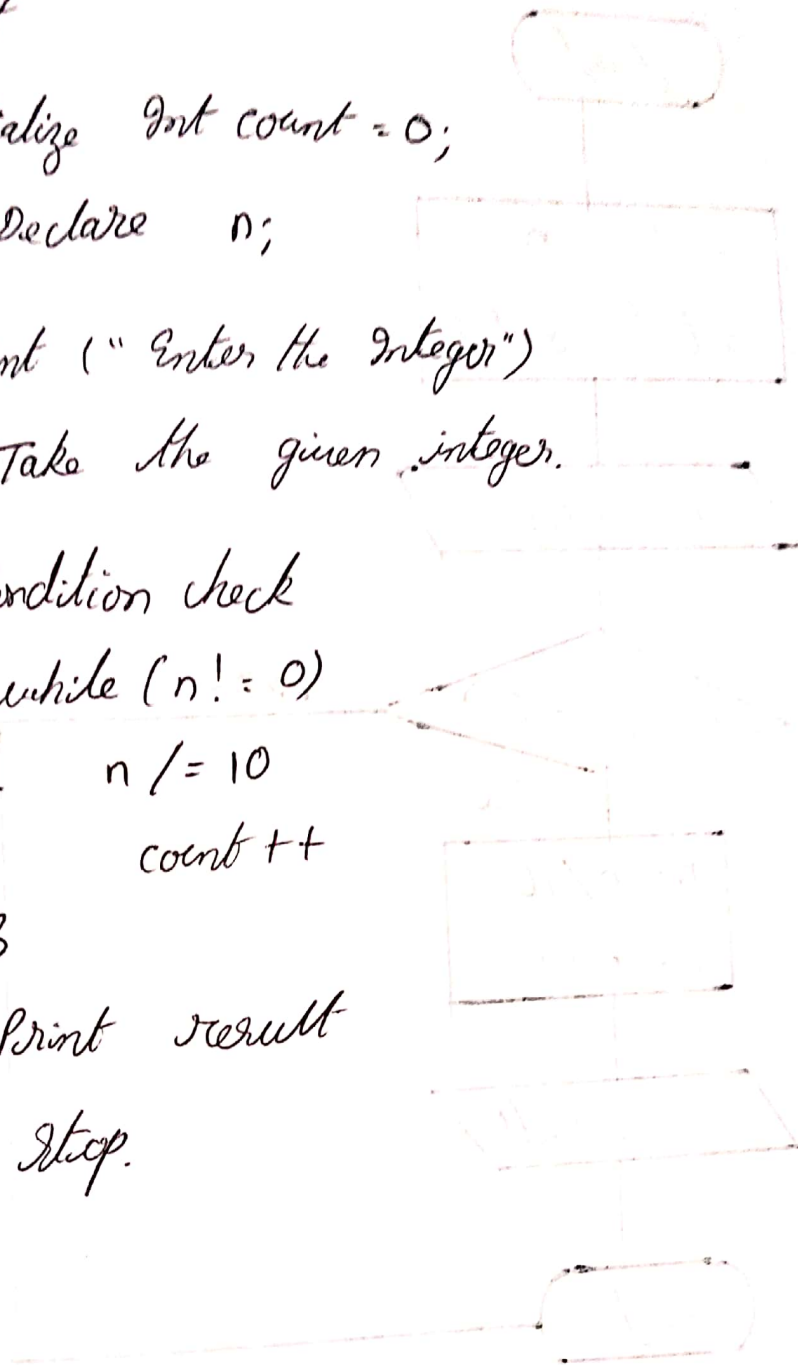 alize Int count = 0;
Declare n;
nt (" Enter the Integer")
Take the given integer.
ondition check
while (n! = 0)
n /= 10
count ++
Print result
Stop.